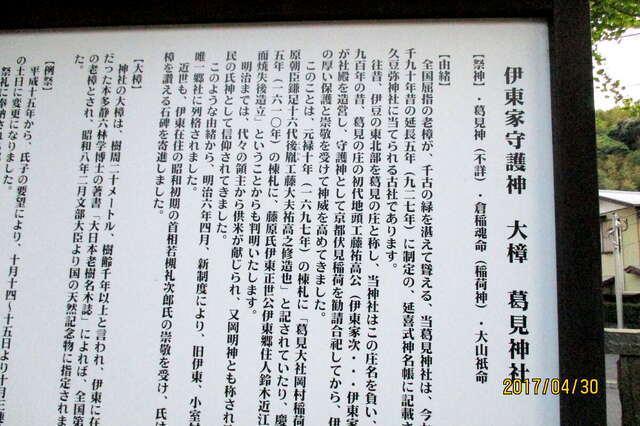 伊東家守護神 大樟 葛見神社
【祭神】・葛見神（不詳）・倉稲魂命（稲荷神）・大山祇命
【由緒】
全国屈指の老樟が、千古の緑を湛えて聳える、当葛見神社は、今か
千九十年昔の延長五年（九二七年）に制定の、延喜式神名帳に記載さ
久豆弥神社に当てられる古社であります。
往昔、伊豆の東北部を葛見の庄と称し、当神社はこの庄名を負い、
九百年の昔、葛見の庄の初代地頭工藤祐高公（伊東家次・・・伊東家
が社殿を造営し、守護神として京都伏見稲荷を勧請合祀してから、伊
の厚い保護と崇敬を受けて神威を高めてきました。
このことは、元禄十年（一六九七年）の棟札に「葛見大社岡村稲荷
原朝臣鎌足十六代後胤工藤大夫祐高之修造也」と記されていたり、慶
五年（一六一〇年）の棟札に、藤原氏伊東正世公伊東郷住人鈴木近江
而焼失後造立」ということからも判明いたします。
明治までは、代々の領主から供米が献じられ、又岡明神とも称され
民の氏神として信仰されてきました。
このような由緒から、明治六年四月、新制度により、旧伊東、小室村
唯一郷社に列格されました。
近世も、伊東在住の昭和初期の首相若槻礼次郎氏の崇敬を受け、氏は
樟を讃える石碑を寄進しました。
【大樟】
神社の大樟は、樹周二十メートル、樹齢千年以上と言われ、伊東に在
だった本多静六林学博士の著書「大日本老樹名木誌」によれば、全国第
の老樟とされ、昭和八年二月文部大臣より国の天然記念物に指定されま
た。
【例祭】
平成十五年から、氏子の要望により、十月十四〜十五日より十月三連
の土日に変更になりました。
祭礼に奉納される
2017/04/30